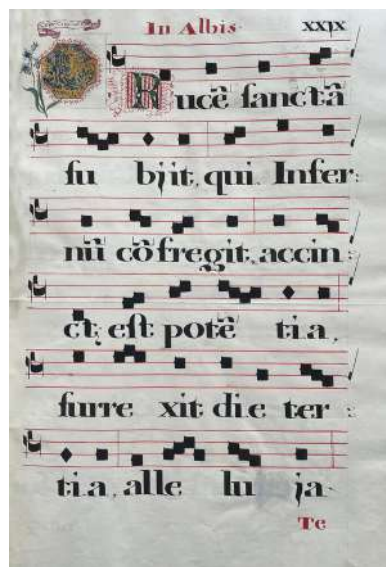 In Albis
xxix
CRucē sanctā
subjit, qui Infer:
nū cōfregit, accin:
ct, est potē tia,
surre xit die ter:
tia, alle lu ja
Te